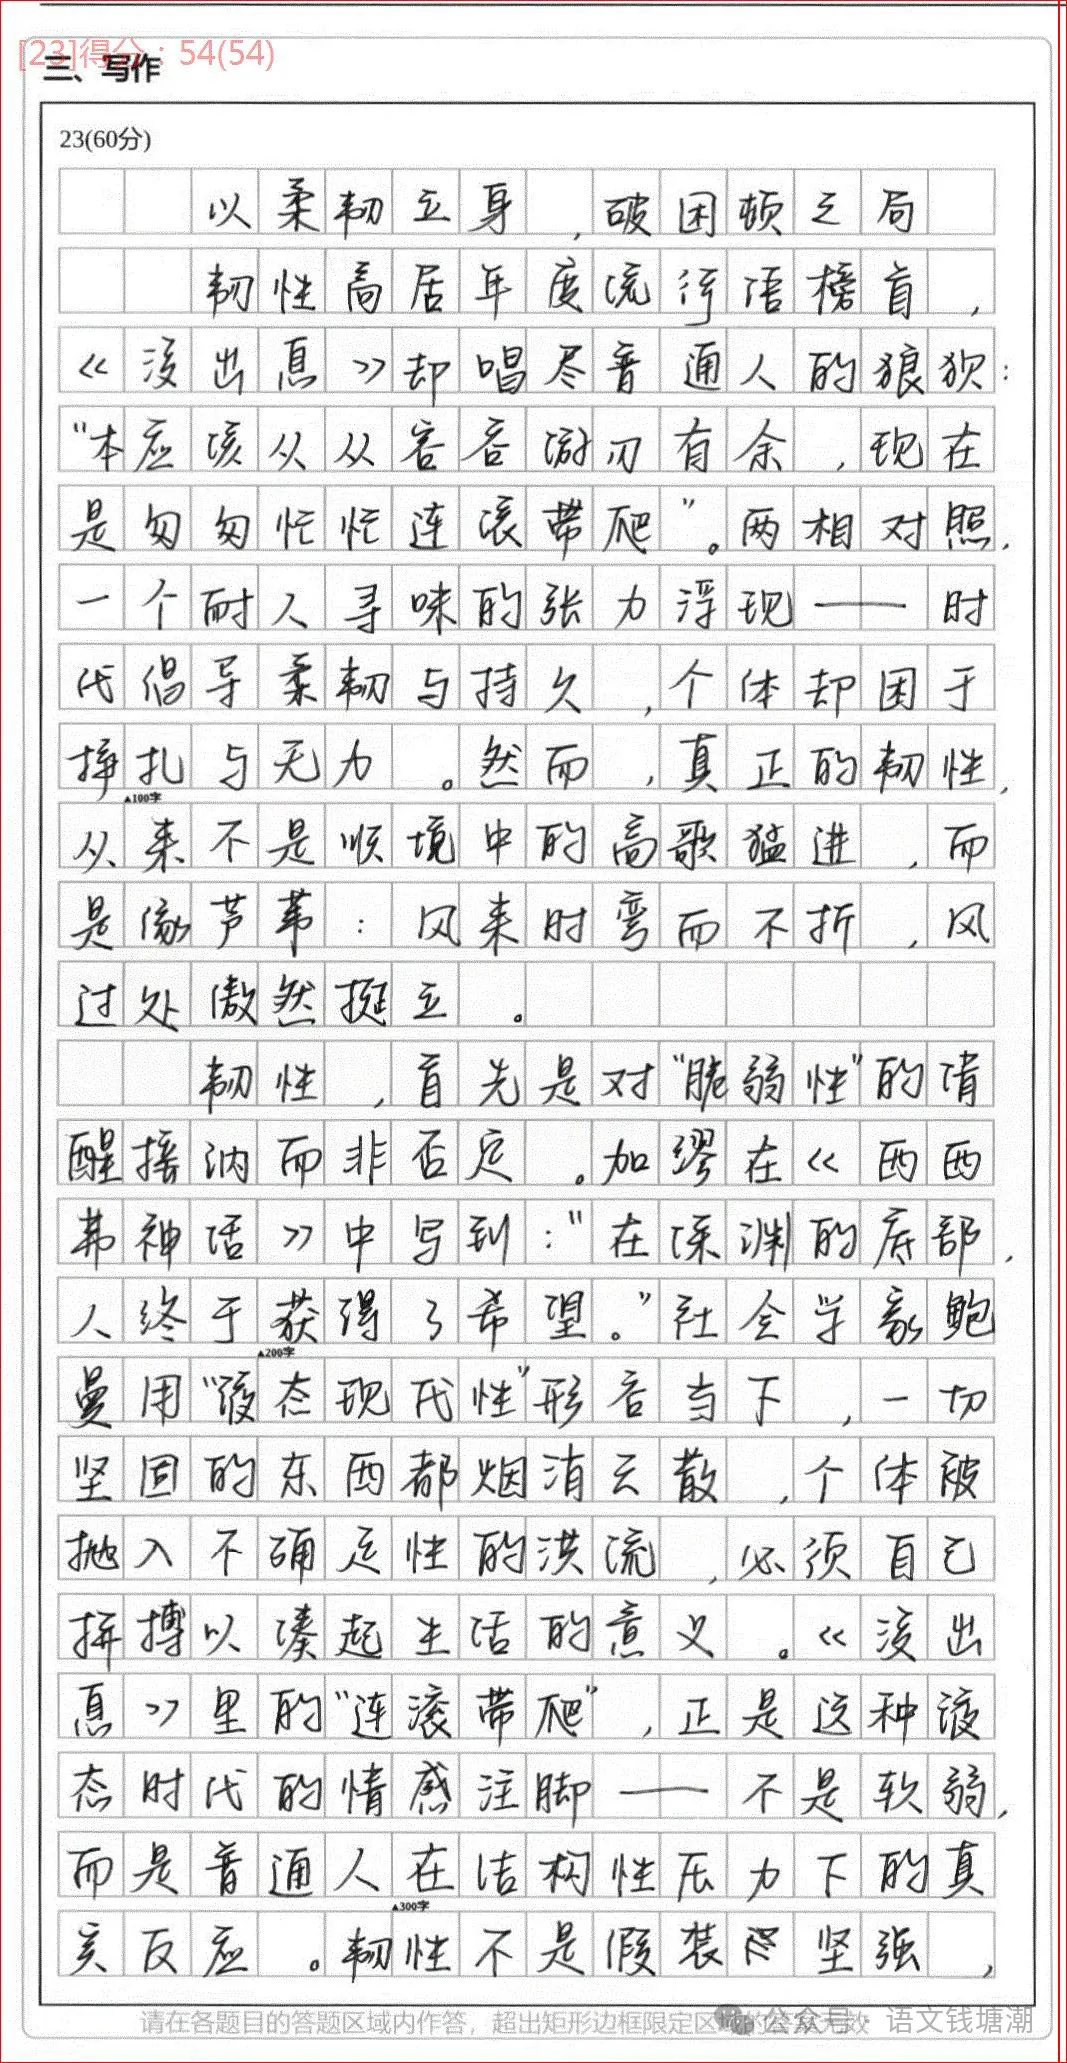 [23]得分：54(54)
三、写作
23(60分)
以柔韧立身，破困顿之局
韧性高居年度流行语榜首，
《没出息》却唱尽普通人的狼狈：
“本应该从从容容游刃有余，现在
是匆匆忙忙连滚带爬”。两相对照，
一个耐人寻味的张力浮现——时
代倡导柔韧与持久，个体却困于
挣扎与无力。然而，真正的韧性，
▲100字
从来不是顺境中的高歌猛进，而
是像芦苇：风来时弯而不折，风
过处傲然挺立。
韧性，首先是对“脆弱性”的清
醒接纳而非否定。加缪在《西西
弗神话》中写到：“在深渊的底部，
人终于获得了希望。”社会学家鲍
▲200字
曼用“液态现代性”形容当下，一切
坚固的东西都烟消云散，个体被
抛入不确定性的洪流，必须自己
拼搏以凑起生活的意义。《没出
息》里的“连滚带爬”，正是这种液
态时代的情感注脚——不是软弱，
而是普通人在结构性压力下的真
▲300字
实反应。韧性不是假装坚强，
请在各题目的答题区域内作答，超出矩形边框限定区域的答案无效
公众号·语文钱塘潮